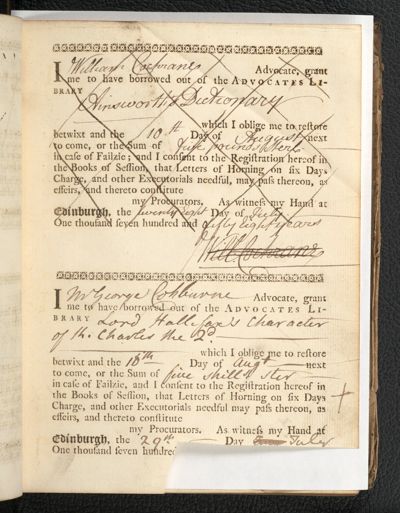 I William Cochrane Advocate, grant
me to have borrowed out of the ADVOCATES LI-
BRARY
Ainsworth's Dictionary
which I oblige me to restore
betwixt and the 10th Day of August next
to come, or the Sum of five pounds Sterl:
in case of Failzie; and I consent to the Registration hereof in
the Books of Session, that Letters of Horning on six Days
Charge, and other Executorials needful, may pass thereon, as
effeirs, and thereto constitute
my Procurators. As witness my Hand at
Edinburgh, the twenty eight Day of July
One thousand seven hundred and fifty eight years
Will: Cochrane
I Mr George Cockburne Advocate, grant
me to have borrowed out of the ADVOCATES LI-
BRARY Lord Hallifax's Character
of K. Charles the 2d
which I oblige me to restore
betwixt and the 18th Day of Augt next
to come, or the Sum of five shill: ster
in case of Failzie, and I consent to the Registration hereof in
the Books of Session, that Letters of Horning on six Days
Charge, and other Executorials needful may pass thereon, as
effeirs, and thereto constitute
my Procurators. As witness my Hand at
Edinburgh, the 29th Day July
One thousand seven hundred